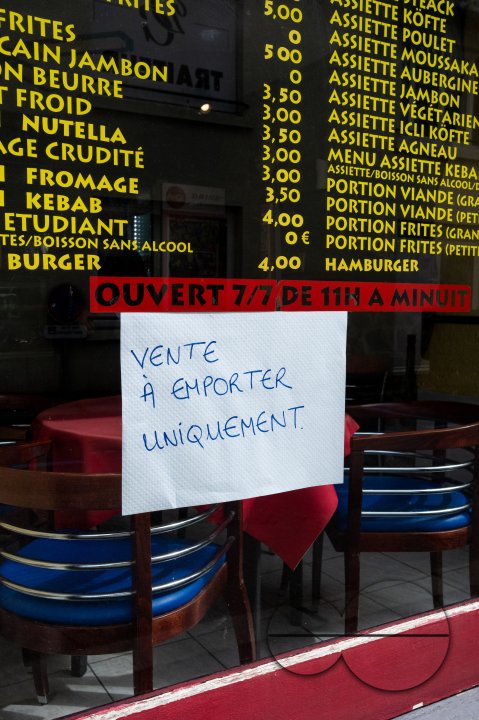 FRITES
CAIN JAMBON
ON BEURRE
T FROID
NUTELLA
AGE CRUDITÉ
FROMAGE
KEBAB
ETUDIANT
TES/BOISSON SANS ALCOOL
BURGER
5,00
0
5 00
0
3,50
3,00
3,50
3,00
3,00
3,50
4,00
0 €
4,00
ASSIETTE KÖFTE
ASSIETTE POULET
ASSIETTE MOUSSAKA
ASSIETTE AUBERGINE
ASSIETTE JAMBON
ASSIETTE VÉGÉTARIEN
ASSIETTE ICLI KÖFTE
ASSIETTE AGNEAU
MENU ASSIETTE KEBA
ASSIETTE/BOISSON SANS ALCOOL/D
PORTION VIANDE (GRA
PORTION VIANDE (PET
PORTION FRITES (GRAN
PORTION FRITES (PETI
HAMBURGER
OUVERT 7/7 DE 11H A MINUIT
VENTE
À EMPORTER
UNIQUEMENT.